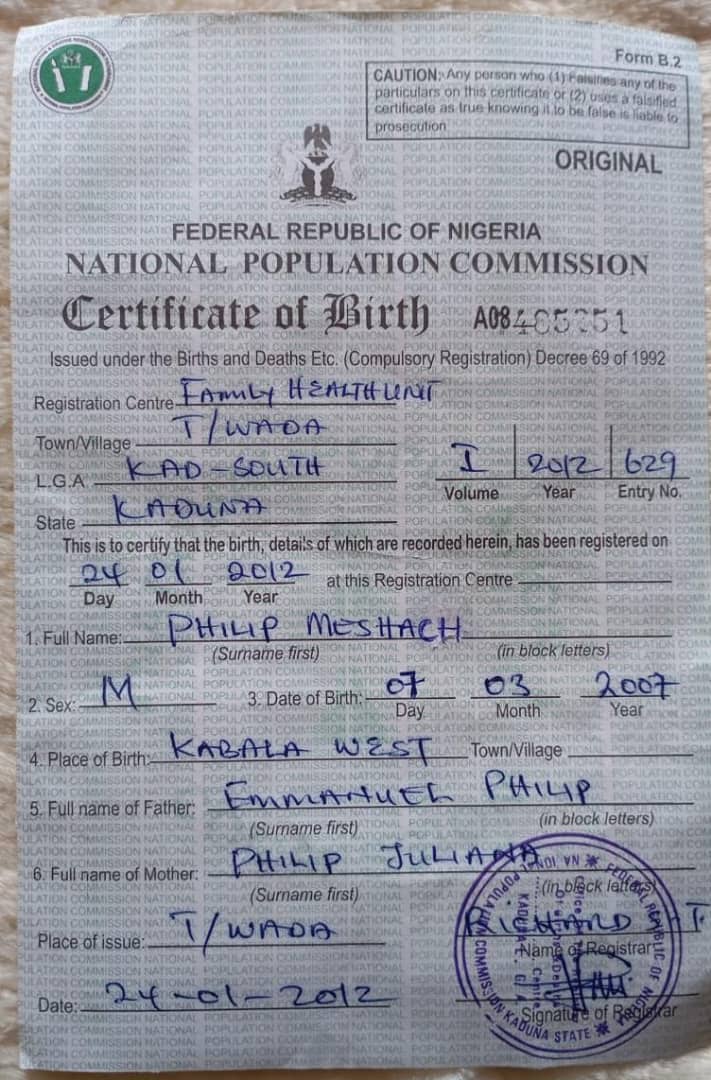 Form B.2
CAUTION: Any person who (1) Falsifies any of the
particulars on this certificate or (2) uses a falsified
certificate as true knowing it to be false is liable to
prosecution
ORIGINAL
FEDERAL REPUBLIC OF NIGERIA
NATIONAL POPULATION COMMISSION
Certificate of Birth A08
Issued under the Births and Deaths Etc. (Compulsory Registration) Decree 69 of 1992
Registration Centre FAMILY HEALTH UNIT
Town/Village T/WADA
L.G.A KAD-SOUTH
I 2012 629
Volume Year Entry No.
State KADUNA
This is to certify that the birth, details of which are recorded herein, has been registered on
24 01 2012 at this Registration Centre
Day Month Year
1. Full Name: PHILIP MESHACH
(Surname first) (in block letters)
2. Sex: M 3. Date of Birth: 07 03 2007
Day Month Year
4. Place of Birth: KABALA WEST Town/Village
5. Full name of Father: EMMANUEL PHILIP
(Surname first) (in block letters)
6. Full name of Mother: PHILIP JULIANA
(Surname first) (in block letters)
Place of issue: T/WADA
RICHARD T.
Name of Registrar
Date: 24-01-2012
Signature of Registrar
FEDERAL REPUBLIC OF NIGERIA
NATIONAL POPULATION COMMISSION KADUNA STATE